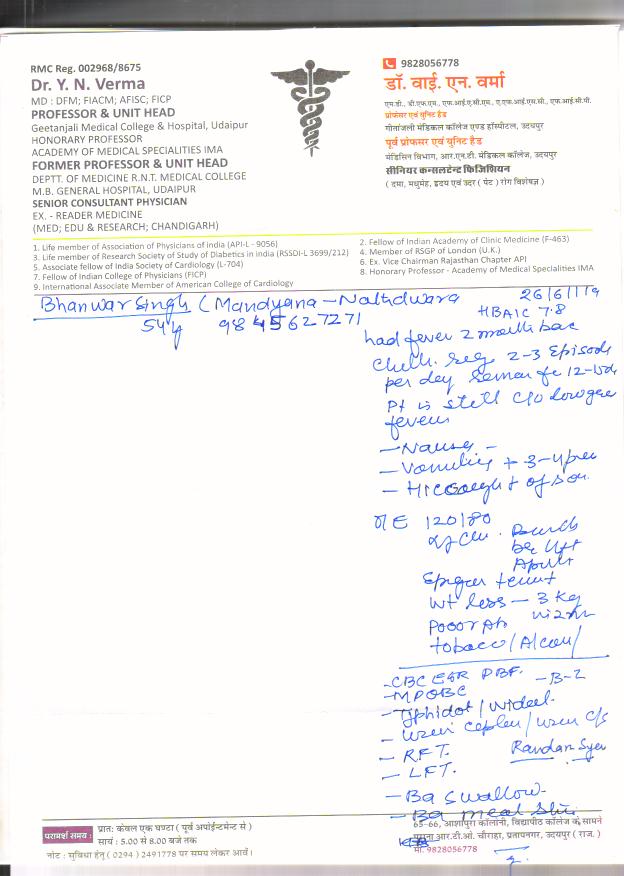 RMC Reg. 002968/8675
Dr. Y. N. Verma
MD : DFM; FIACM; AFISC; FICP
PROFESSOR & UNIT HEAD
Geetanjali Medical College & Hospital, Udaipur
HONORARY PROFESSOR
ACADEMY OF MEDICAL SPECIALITIES IMA
FORMER PROFESSOR & UNIT HEAD
DEPTT. OF MEDICINE R.N.T. MEDICAL COLLEGE
M.B. GENERAL HOSPITAL, UDAIPUR
SENIOR CONSULTANT PHYSICIAN
EX. - READER MEDICINE
(MED; EDU & RESEARCH; CHANDIGARH)
9828056778
डॉ. वाई. एन. वर्मा
एम.डी., डी.एफ.एम., एफ.आई.ए.सी.एम., ए.एफ.आई.एस.सी., एफ.आई.सी.पी.
प्रोफेसर एवं युनिट हैड
गीतांजली मेडिकल कॉलेज एण्ड हॉस्पीटल, उदयपुर
पूर्व प्रोफेसर एवं युनिट हैड
मेडिसिन विभाग, आर.एन.टी. मेडिकल कॉलेज, उदयपुर
सीनियर कन्सलटेन्ट फिजिशियन
( दमा, मधुमेह, हृदय एवं उदर ( पेट ) रोग विशेषज्ञ )
1. Life member of Association of Physicians of India (API-L - 9056)
3. Life member of Research Society of Study of Diabetes in India (RSSDI-L 3699/212)
5. Associate fellow of India Society of Cardiology (L-704)
7. Fellow of Indian College of Physicians (FICP)
9. International Associate Member of American College of Cardiology
2. Fellow of Indian Academy of Clinic Medicine (F-463)
4. Member of RSGP of London (U.K.)
6. Ex. Vice Chairman Rajasthan Chapter API
8. Honorary Professor - Academy of Medical Specialities IMA
Bhanwar Singh (Mandyana - Nathdwara
26/6/19
54y 9845627271
HBAIC 7.8
had fever 2 month bac
2-3 Episode
per day
Pt is still c/o
fever
- Nausea -
- Vomiting + 3-4
- Hiccough +
O/E 120/80
wt loss - 3 kg
tobacco/Alcoh/
- CBC ESR PBF. - B-2
- MP QBC
- Typhidot / Widal.
- urine / urine C/S
- RFT. Random
- LFT.
- Ba swallow
- Ba meal
परामर्श समय :
प्रातः केवल एक घण्टा ( पूर्व अपॉईन्टमेन्ट से )
सायं : 5.00 से 8.00 बजे तक
नोट : सुविधा हेतु ( 0294 ) 2491778 पर समय लेकर आवें।
65-66, आशापुरा कॉलोनी, विद्यापीठ कॉलेज के सामने
पुराना आर.टी.ओ. चौराहा, प्रतापनगर, उदयपुर ( राज. )
मो. 9828056778